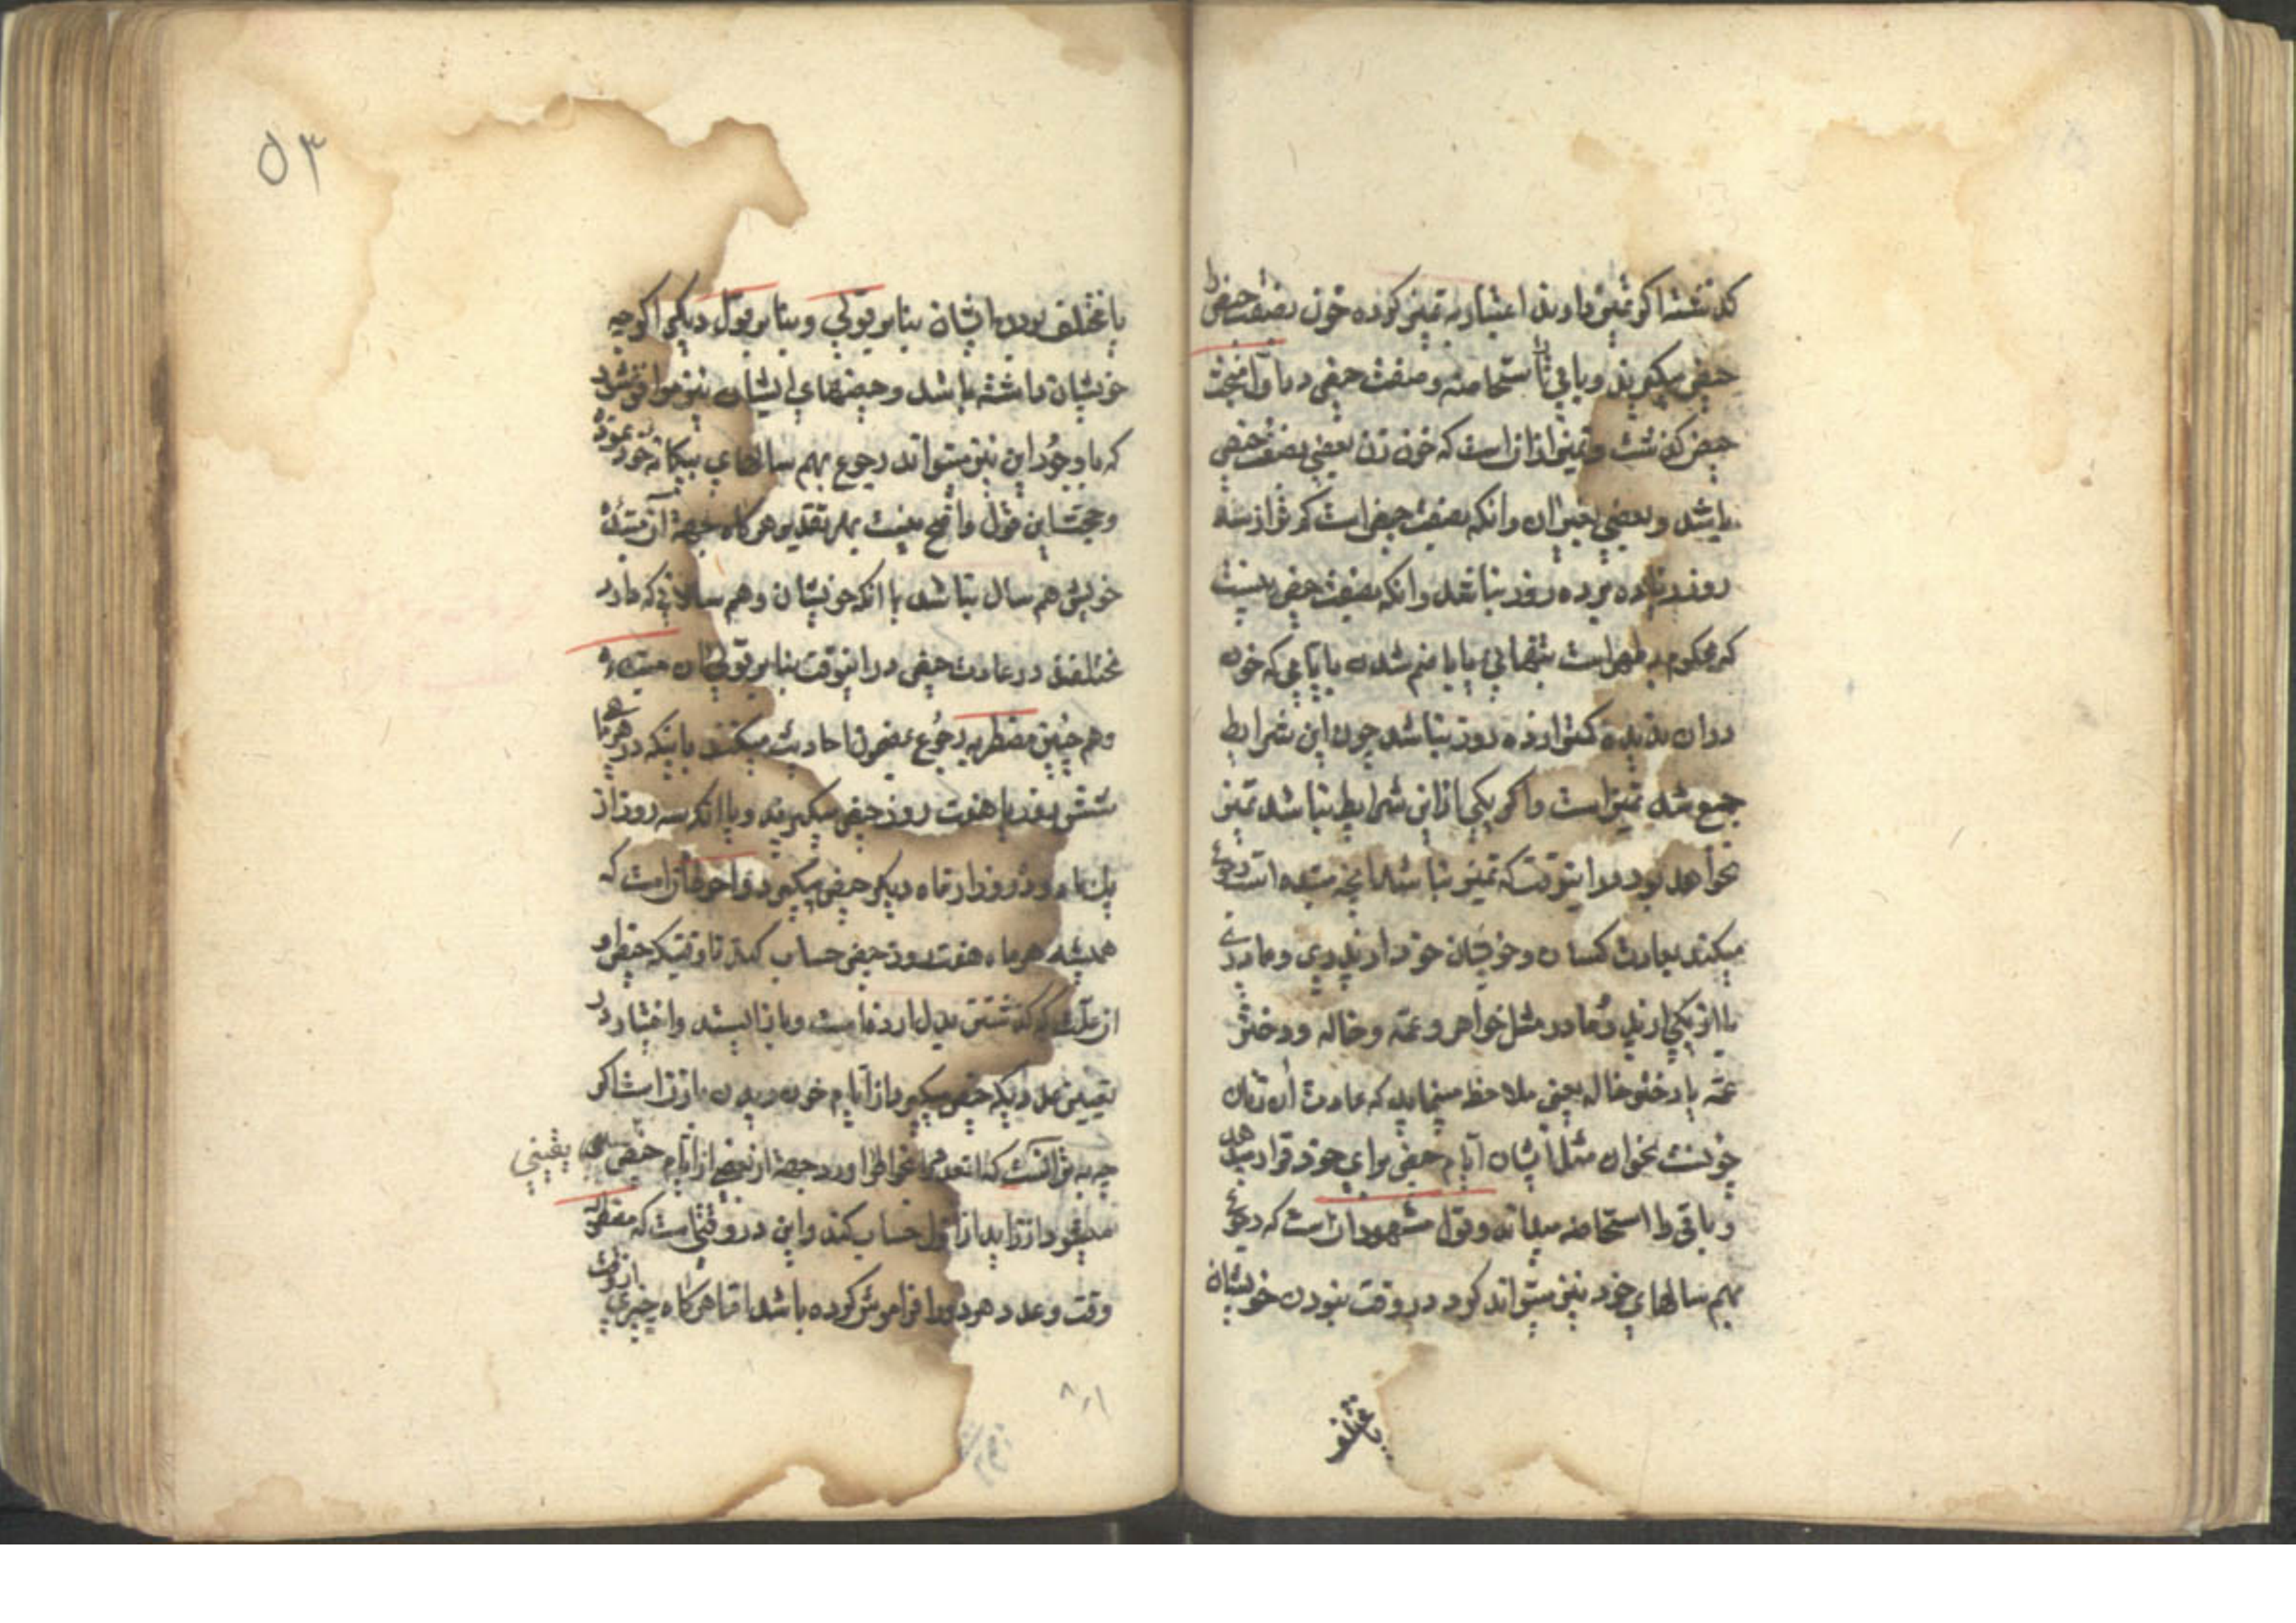 گذشته اگر تمیز دارند اعتبار به تمیز کرده خون بصفت حیض را
حیض میگیرند و باقی را استحاضه و صفت حیض دماء
حیض گذشت و تمیز از آن است که خون زن بعضی بصفت حیض
باشد و بعضی بغیر آن و آنکه بصفت حیض است کمتر از سه
روز و زیاده بر ده روز نباشد و آنکه بصفت حیض نیست
که محکوم به طهر است بتنهائی یا با منضم شدن با ایامی که خون
در آن ندیده کمتر از ده روز نباشد چون این شرایط
جمع شد تمیز است و اگر یکی از این شرایط نباشد تمیز
نخواهد بود در اینوقت که تمیز نباشد آنچه مبتدئه است رجوع
میکند بعادت کسان و خویشان خود از پدری و مادری
یا از یکی از پدر و مادر مثل خواهر و عمه و خاله و دختر
عمه یا دختر خاله یعنی ملاحظه مینماید که عادت آن زنان
چونست بخوان مثل ایشان ایام حیض برای خود قرار میدهد
و باقی را استحاضه میداند و قول مشهور آن است که رجوع
بهم سالهای خود نیز میتواند کرد در وقت نبودن خویشان
یا مختلف
۵۳
یا مختلف بودن ایشان بنابر قولی و بنابر قول دیگر اگر چه
خویشان داشته باشد و حیضهای ایشان نیز موافق شود
که با وجود این نیز میتواند رجوع بهم سالهای بیگانه خود نمود
و حجت این قول واضح نیست بهر تقدیر هر گاه جهة آن مبتدئه
خویش هم سال نباشد یا آنکه خویشان و هم سالانی که دارد
مختلفند در عادت حیض در اینوقت بنابر قولی آن مبتدئه
و هم چنین مضطربه رجوع بمضمون احادیث میکنند باینکه در هر ماهی
شش روز یا هفت روز حیض میگیرند و یا آنکه سه روز از
یک ماه و ده روز از ماه دیگر حیض میگیرد و احوط آن است که
همیشه هر ماه هفت روز حیض حساب کند تا وقتیکه حیض او
از علت گذشتن بدل از ده است و باز ایستد و اختیار در
تعیین عددیکه حیض میگیرد از ایام خون دیدن با زن است اگر
چه بهتر آنست که اندهر اورد جهة از بعضی از ایام حیض یقینی
وقود از زاید از اول حساب کند و این در وقتی است که مضطربه
وقت و عدد هر دو را فراموش کرده باشد اما هر گاه چیزی از وقت
۸۰۱